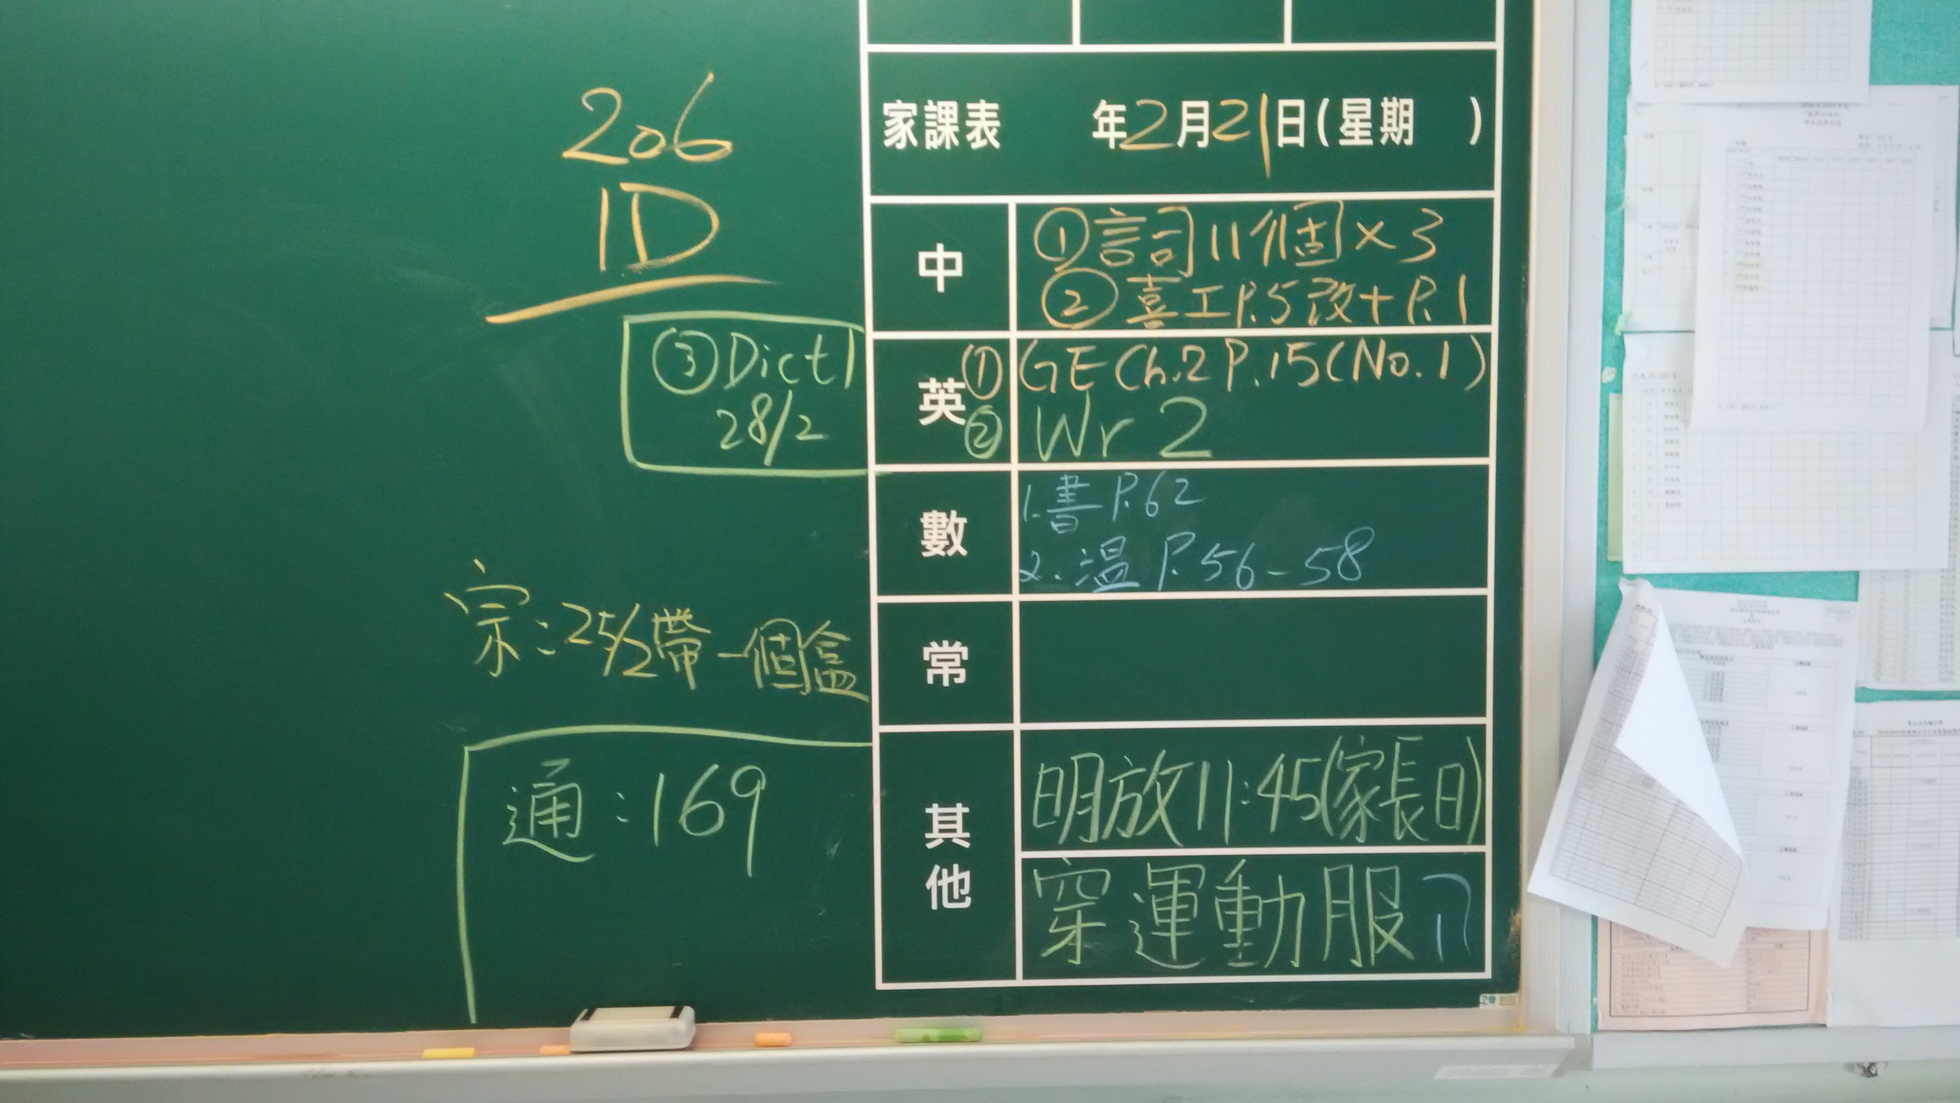 206
1D
家課表 年2月21日(星期 )
中
①詞11個×3
②喜工P.5改+P.1
英
①GE Ch.2 P.15(No.1)
②Wr 2
③Dict 1
28/2
數
1.書P.62
2.溫P.56-58
常
宗:25/2帶一個盒
其他
明放11:45(家長日)
穿運動服
通:169